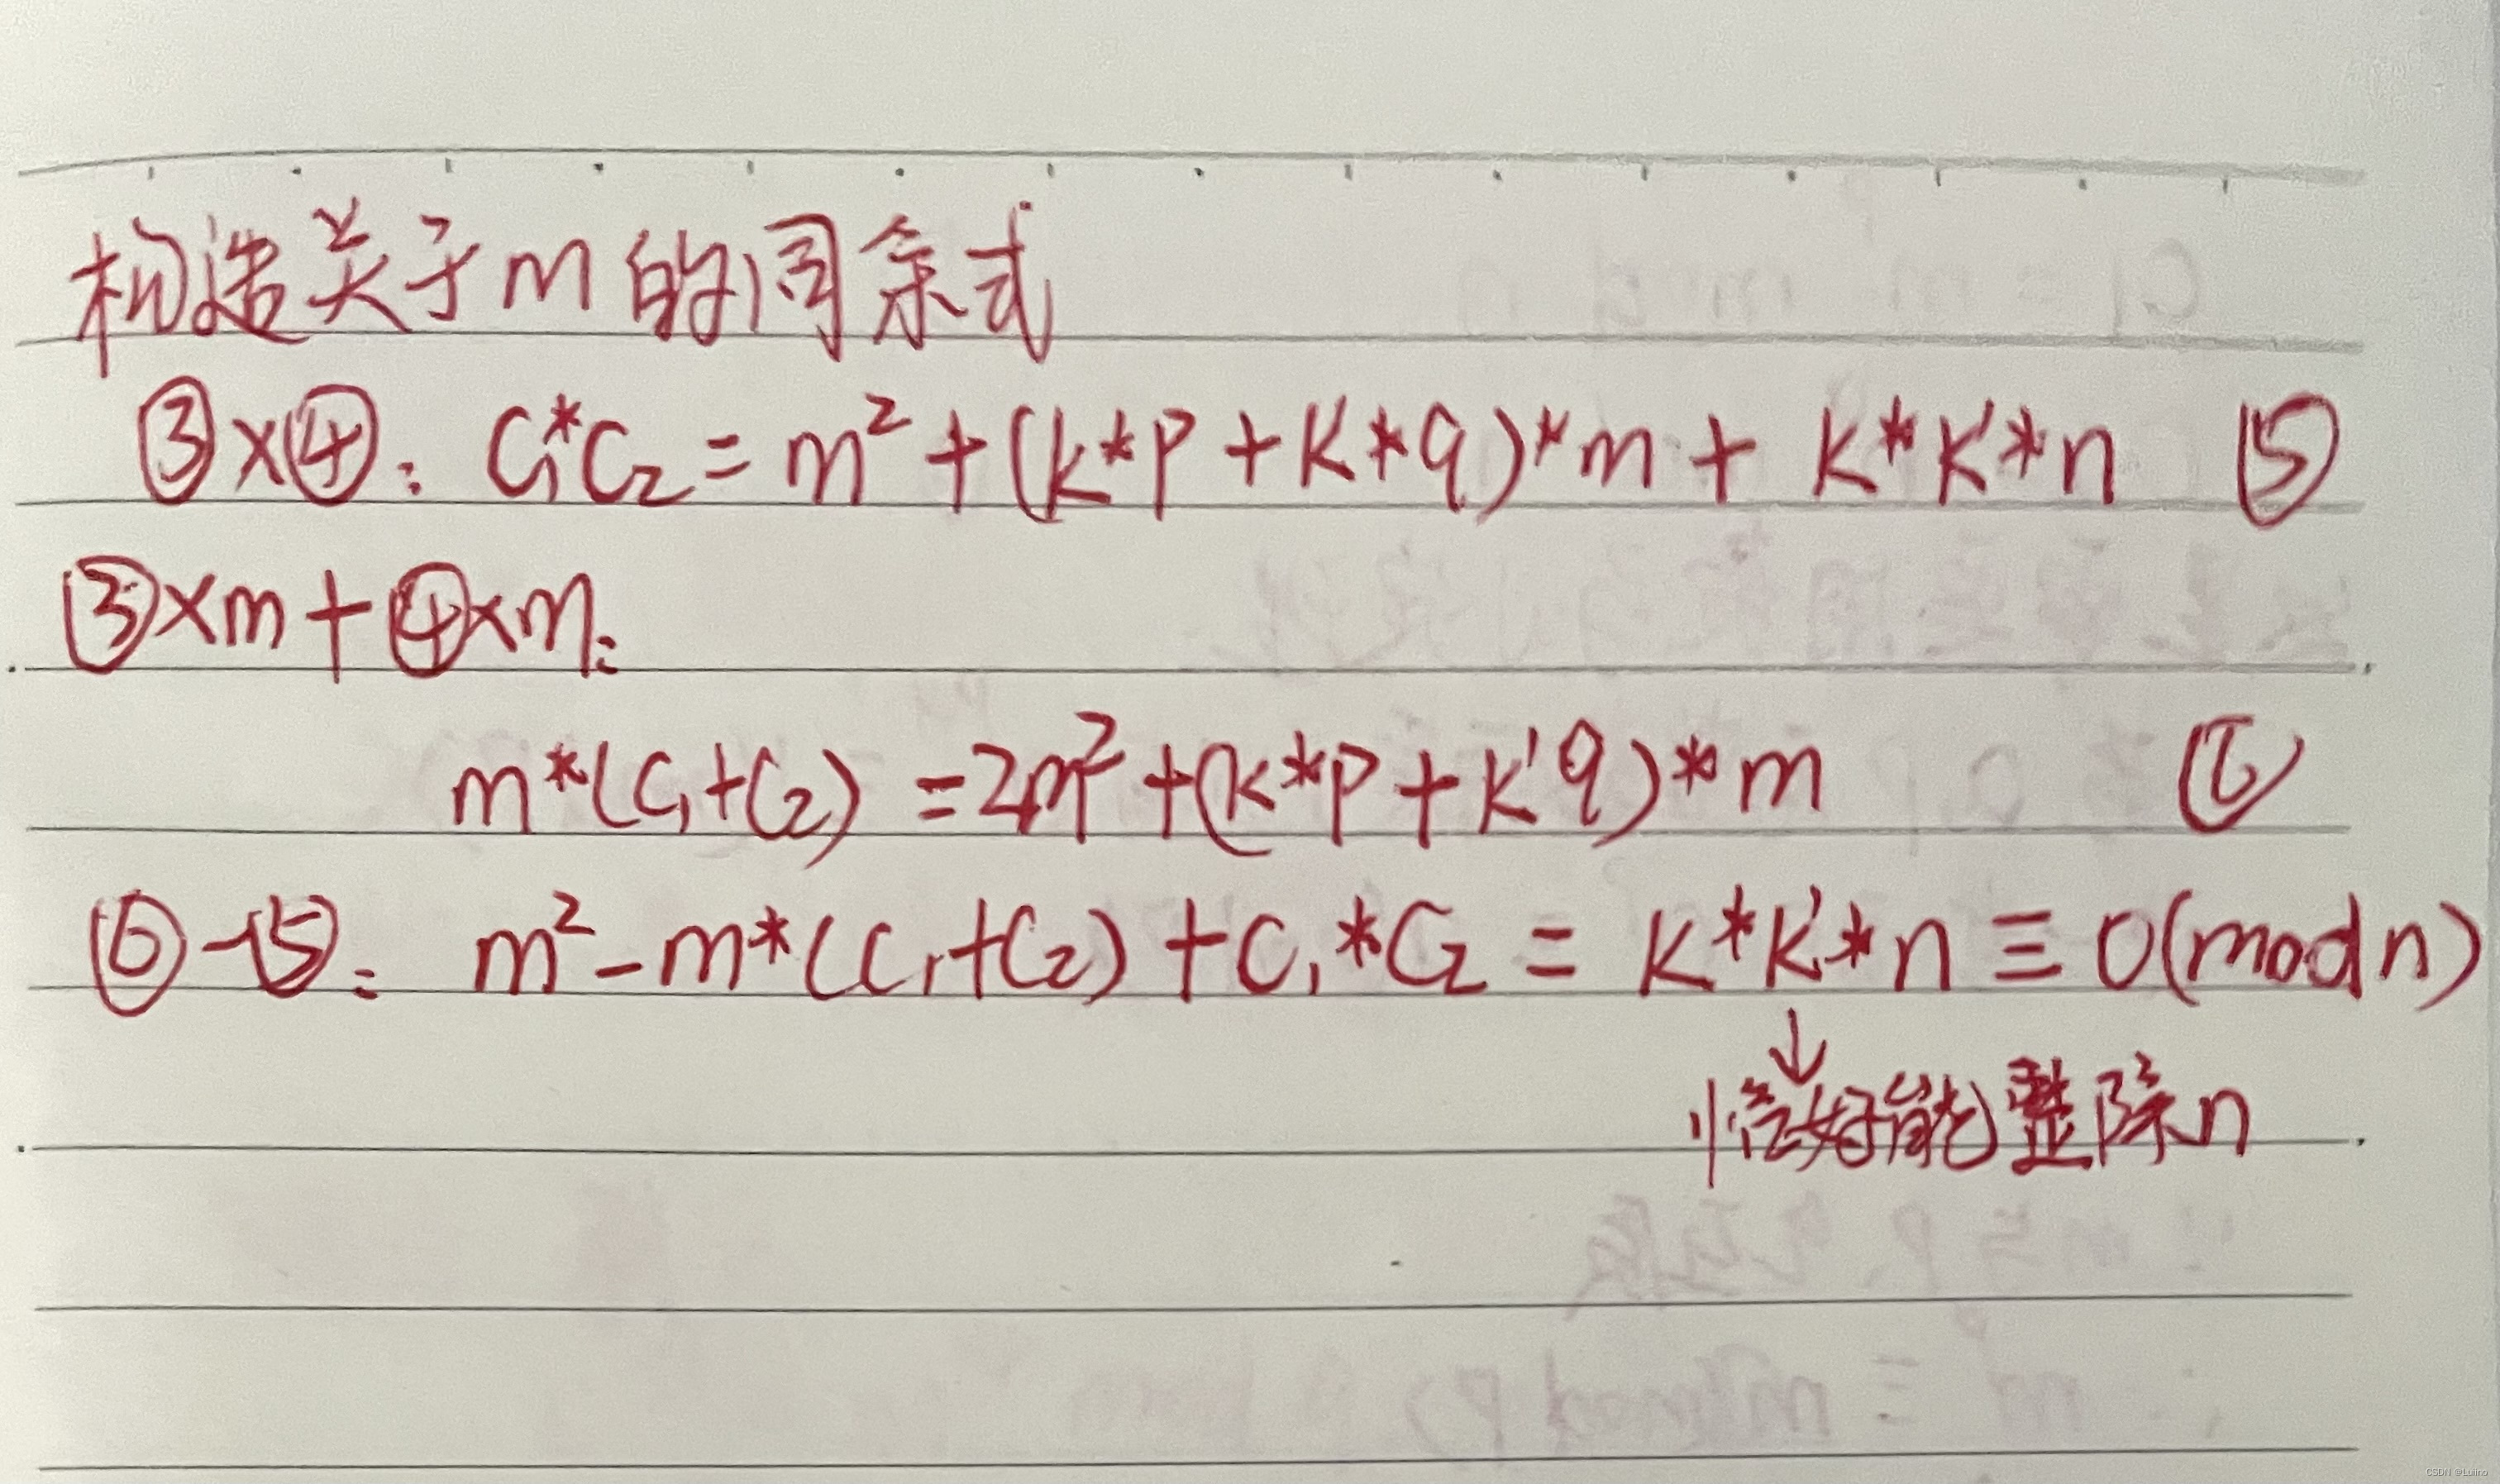 构造关于m的同余式
③×④: C₁*C₂ = m² + (k*p + k*q)*m + k*k'*n ⑤
③×m + ④×m:
m*(C₁+C₂) = 2m² + (k*p + k'q)*m ⑥
⑥-⑤: m² - m*(C₁+C₂) + C₁*C₂ = k*k'*n ≡ 0(mod n)
↓
恰好能整除n
CSDN @Luiino